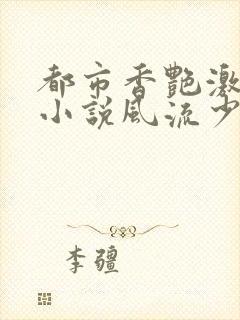 都市香艷激
小說風流少
李疆